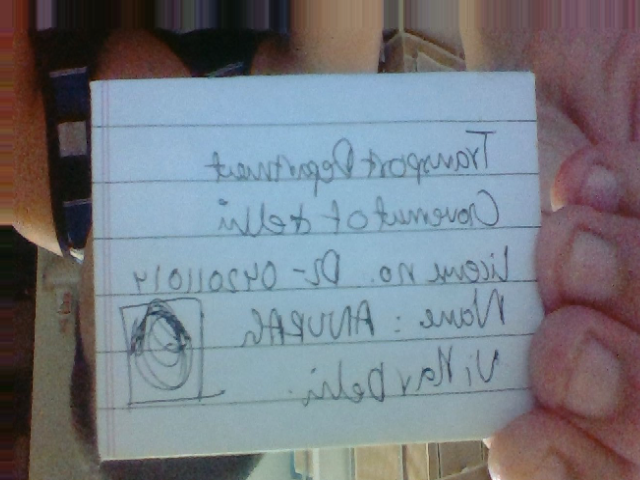 Transport Department
Governut of delhi
License no. DL-042011014
Name : ANURAG
Vihar Delhi.